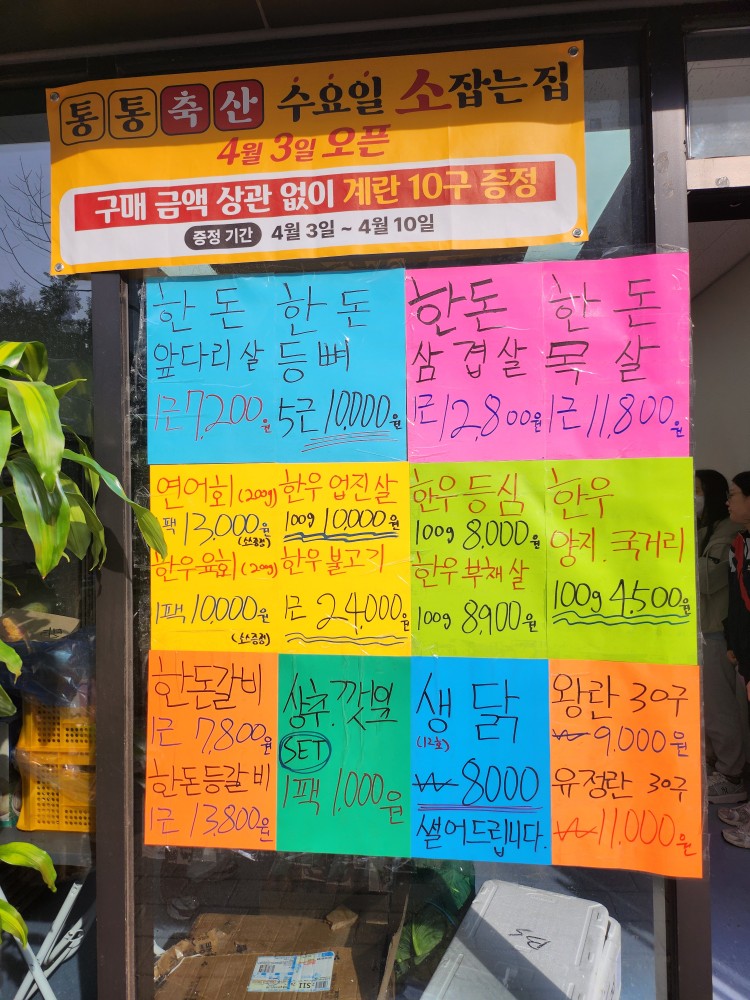 통통축산 수요일 소잡는집
4월 3일 오픈
구매 금액 상관 없이 계란 10구 증정
증정 기간 4월 3일 ~ 4월 10일
한돈
앞다리살
1근 7,200원
한돈
등뼈
5근 10,000원
한돈
삼겹살
1근 12,800원
한돈
목살
1근 11,800원
연어회 (200g)
1팩 13,000원
(소스증정)
한우육회 (200g)
1팩 10,000원
(소스증정)
한우 업진살
100g 10,000원
한우 불고기
1근 24,000원
한우등심
100g 8,000원
한우부채살
100g 8,900원
한우
양지. 국거리
100g 4,500원
한돈갈비
1근 7,800원
한돈등갈비
1근 13,800원
상추.깻잎
SET
1팩 1,000원
생닭
(12호)
₩ 8000
썰어드립니다.
왕란 30구
₩ 9,000원
유정란 30구
₩ 11,000원